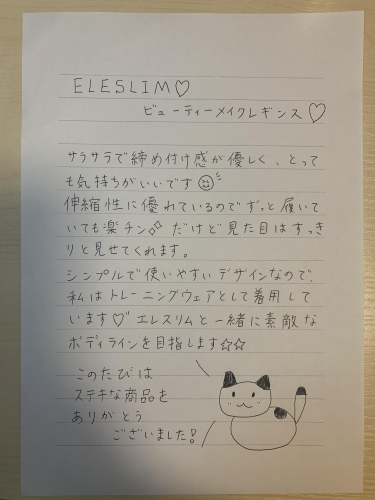 ELESLIM♡
ビューティーメイクレギンス♡
サラサラで締め付け感が優しく、とって
も気持ちがいいです☺
伸縮性に優れているのでずっと履いて
いても楽チン✨だけど見た目はすっき
りと見せてくれます。
シンプルで使いやすいデザインなので、
私はトレーニングウェアとして着用して
います♡エレスリムと一緒に素敵な
ボディラインを目指します☆☆
このたびは
ステキな商品を
ありがとう
ございました!